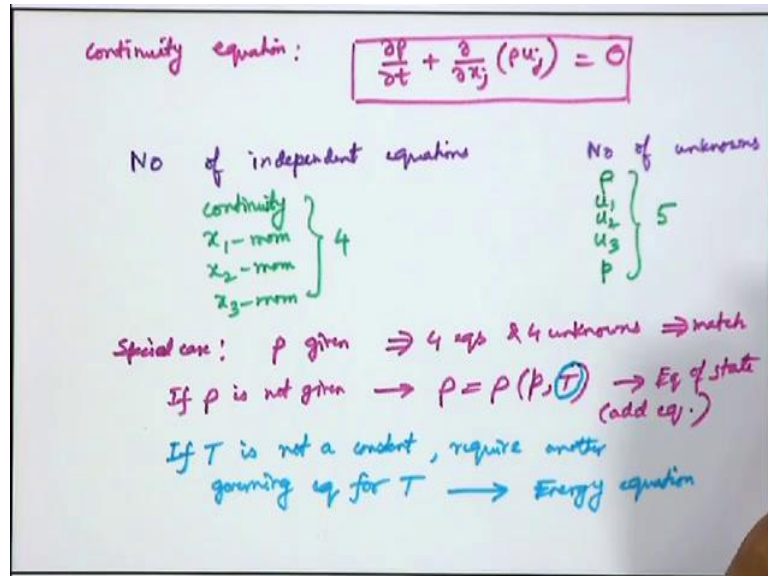 continuity equation: ∂ρ/∂t + ∂/∂xⱼ (ρuⱼ) = 0
No of independent equations
continuity
x₁-mom
x₂-mom
x₃-mom
} 4
No of unknowns
ρ
u₁
u₂
u₃
p
} 5
Special case: ρ given ⇒ 4 eqs & 4 unknowns ⇒ match
If ρ is not given → ρ = ρ(p, T) → Eq of state
(add eq.)
If T is not a constant, require another
governing eq for T → Energy equation